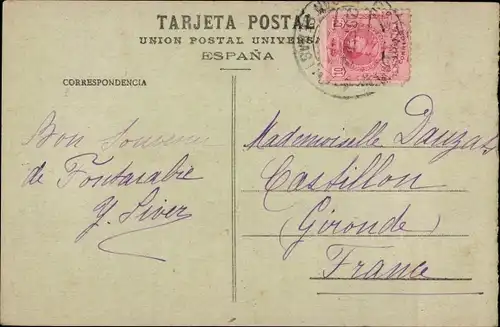 TARJETA POSTAL
UNION POSTAL UNIVERS
ESPAÑA
CORRESPONDENCIA
Bon Souvenir
de Fontarabie
Y. Siver
Mademoiselle Dauzats
Castillon
(Gironde)
France
10